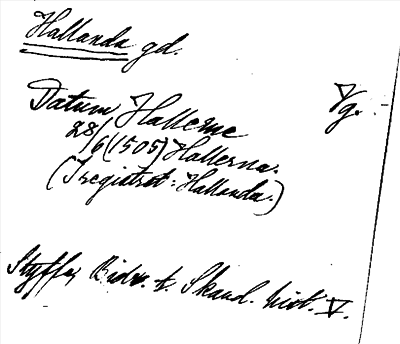 Hallanda gd.
Vg.
Datum Hallerne
28/6 (1505) Hallerna.
(I registret: Hallanda.)
Styffe, Bidr. t. Skand. hist. V.